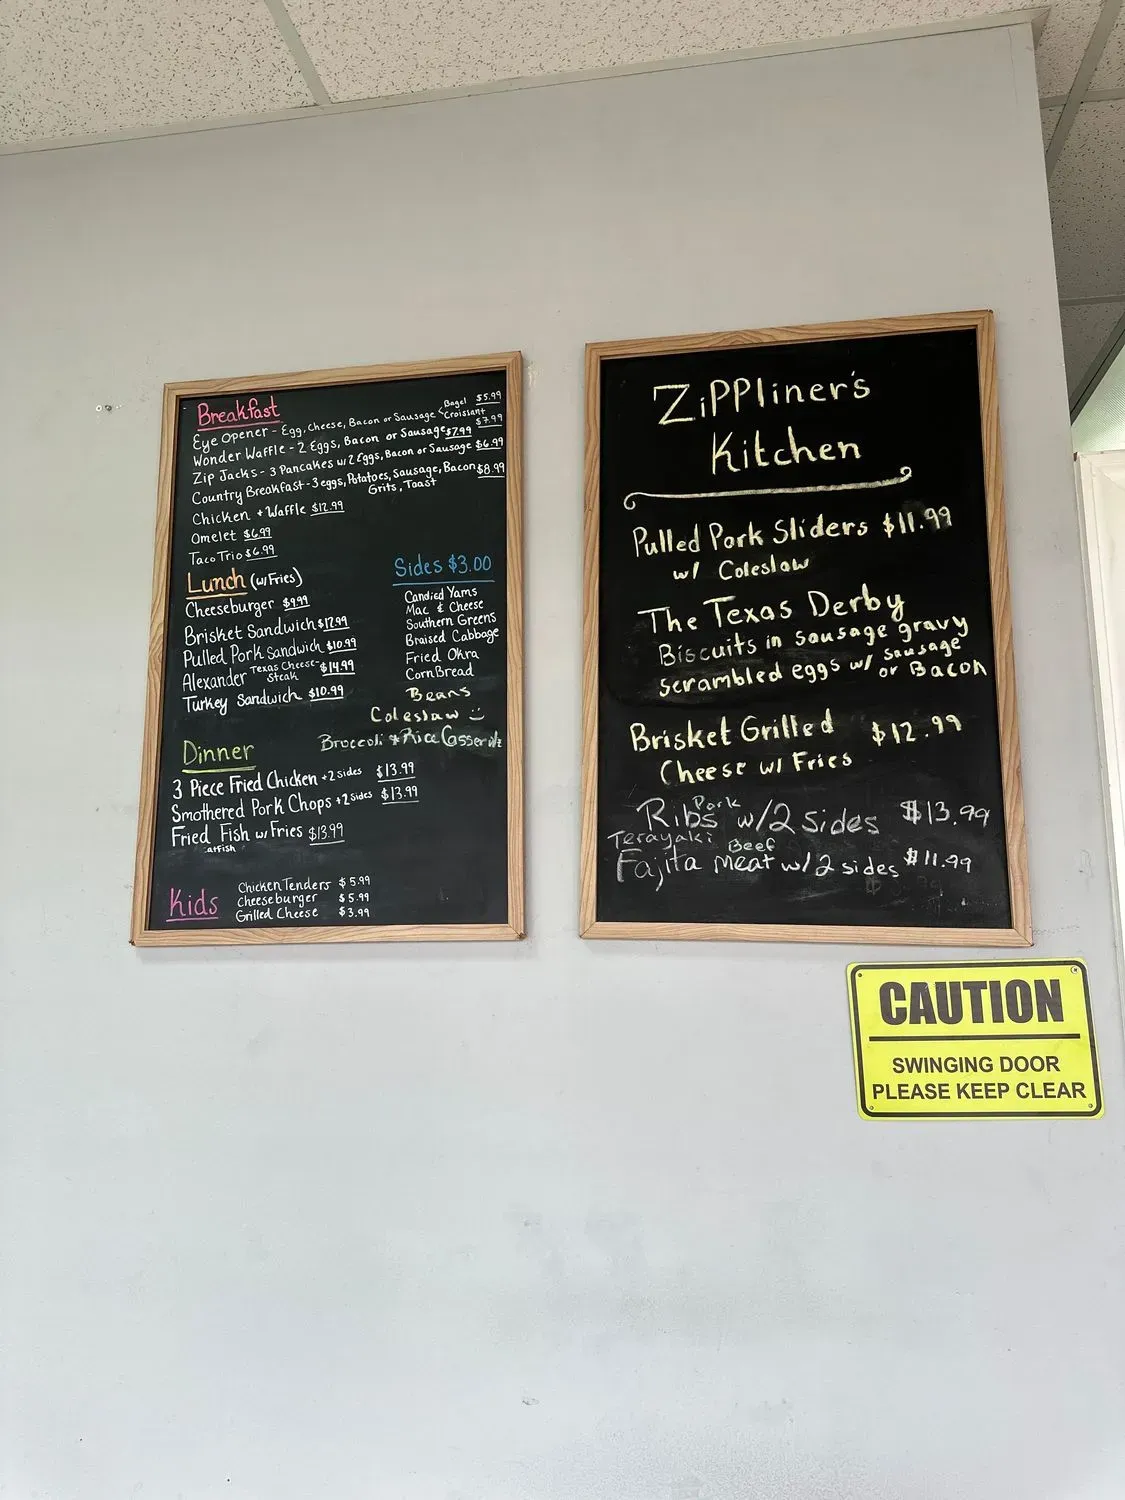 Breakfast
Eye Opener - Egg, Cheese, Bacon or Sausage < Bagel $5.99
Croisiant $7.99
Wonder Waffle - 2 Eggs, Bacon or Sausage $7.99
Zip Jacks - 3 Pancakes w/ 2 Eggs, Bacon or Sausage $6.99
Country Breakfast - 3 eggs, Potatoes, Sausage, Bacon $8.99
Grits, Toast
Chicken + Waffle $12.99
Omelet $6.99
Taco Trio $6.99
Lunch (w/ Fries)
Cheeseburger $9.99
Brisket Sandwich $12.99
Pulled Pork Sandwich $10.99
Alexander Texas Cheese-
Steak $14.99
Turkey Sandwich $10.99
Sides $3.00
Candied Yams
Mac & Cheese
Southern Greens
Braised Cabbage
Fried Okra
Corn Bread
Beans
Coleslaw
Broccoli & Rice
Dinner
3 Piece Fried Chicken + 2 sides $13.99
Smothered Pork Chops + 2 sides $13.99
Fried Fish w/ Fries $13.99
atfish
Kids
Chicken Tenders $5.99
Cheeseburger $5.99
Grilled Cheese $3.99
ZiPPliner's
Kitchen
Pulled Pork Sliders $11.99
w/ Coleslaw
The Texas Derby
Biscuits in sausage gravy
scrambled eggs w/ sausage
or Bacon
Brisket Grilled $12.99
Cheese w/ Fries
Pork
Ribs w/2 sides $13.99
Terayaki Beef
Fajita meat w/2 sides $11.99
CAUTION
SWINGING DOOR
PLEASE KEEP CLEAR